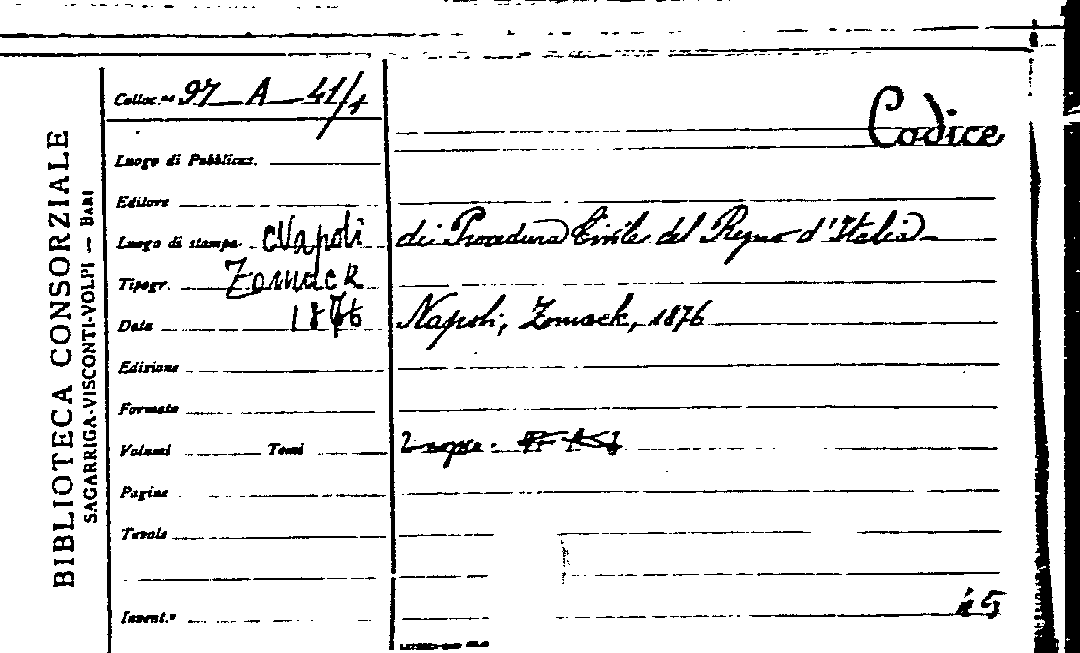 BIBLIOTECA CONSORZIALE
SAGARRIGA-VISCONTI-VOLPI — BARI
Colloc.ne 97 A 41/1
Codice
Luogo di Pubblicaz.
Editore
Luogo di stampa Napoli
di Procedura Civile del Regno d'Italia
Tipogr. Zomack
Data 1876
Napoli, Zomack, 1876
Edizione
Formato
Volumi Tomi
2 copie:
Pagine
Tavole
Invent.º